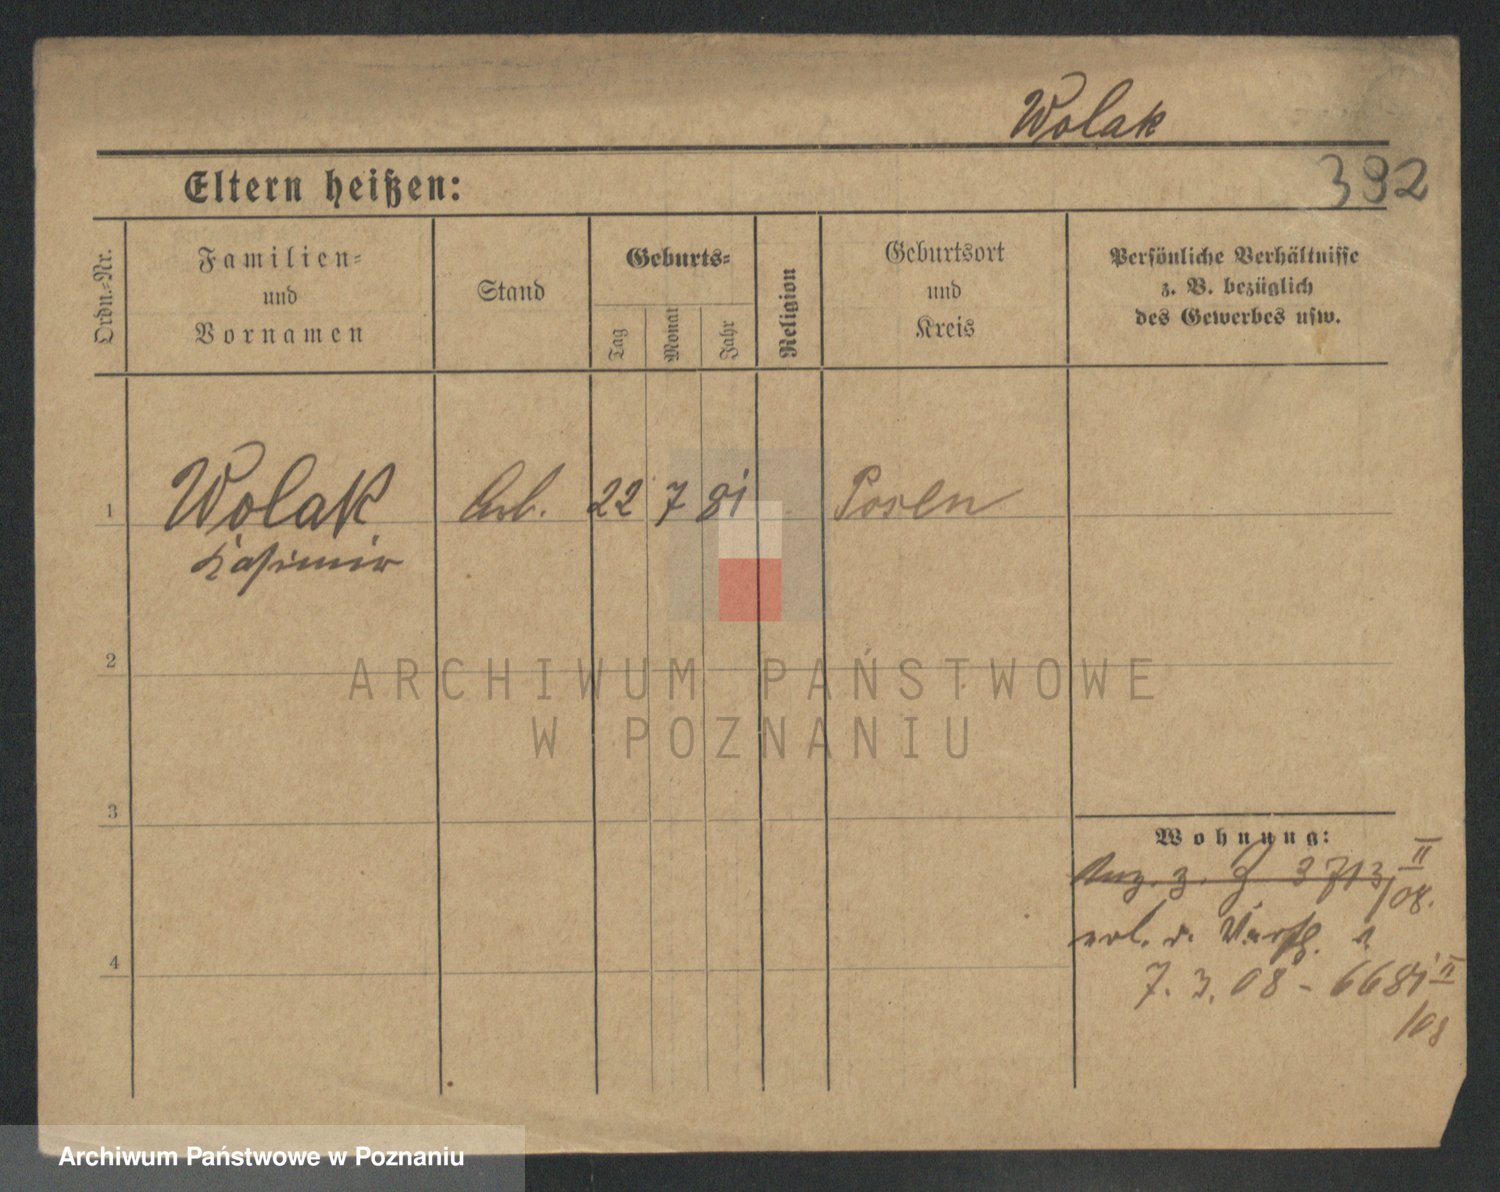 Wolak
392
Eltern heißen:
Ordn.-Nr.
Familien-
und
Vornamen
Stand
Geburts-
Tag
Monat
Jahr
Religion
Geburtsort
und
Kreis
Persönliche Verhältnisse
z. B. bezüglich
des Gewerbes usw.
1
Wolak
Arb.
22
7
81
Posen
Kasimir
2
ARCHIWUM PAŃSTWOWE
W POZNANIU
3
Wohnung:
z. J 3713 II
/08.
erl. d. Verfg. v.
4
7. 3. 08 - 6681 II
/08
Archiwum Państwowe w Poznaniu